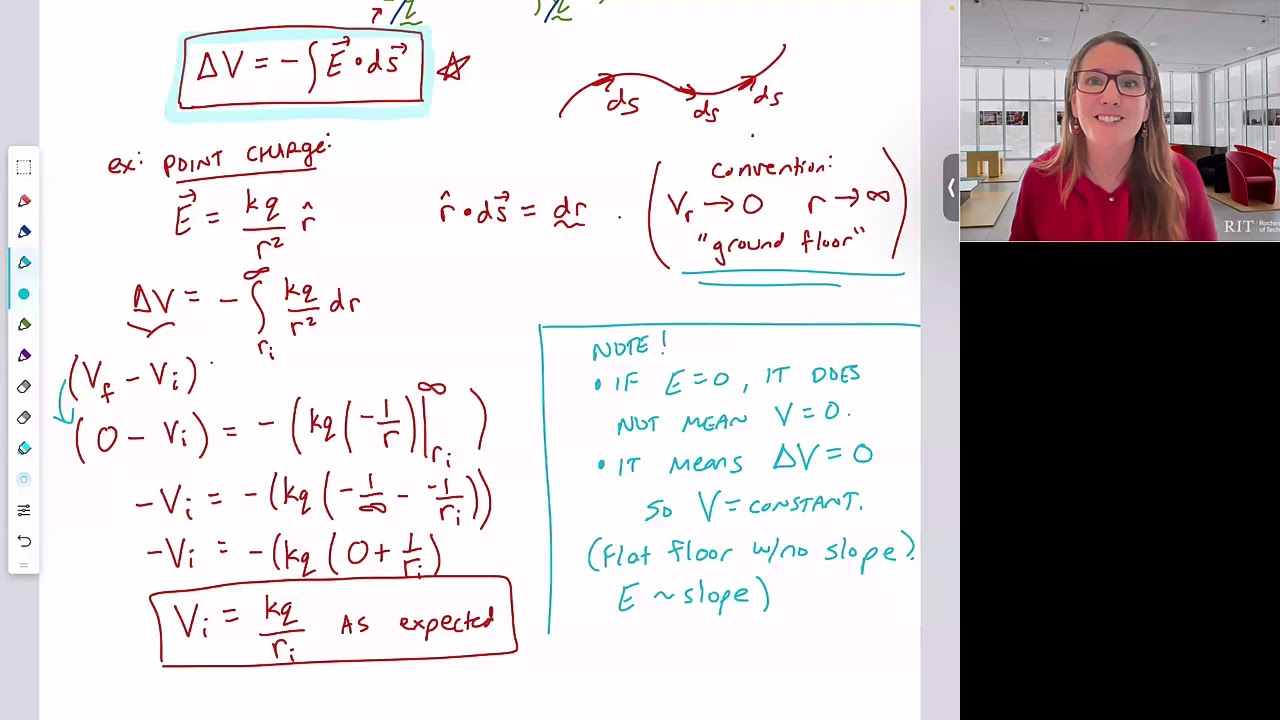 ΔV = -∫ E⃗ • ds⃗ ☆
ds ds ds
ex: POINT CHARGE:
E⃗ = kq/r² r̂
r̂ • ds⃗ = dr
(Convention:
Vr → 0 r → ∞
"ground floor")
ΔV = -∫_{ri}^{∞} kq/r² dr
(Vf - Vi)
(0 - Vi) = -(kq(-1/r)|_{ri}^{∞})
-Vi = -(kq(-1/∞ - -1/ri))
-Vi = -(kq(0 + 1/ri)
Vi = kq/ri AS expected
NOTE!
• IF E = 0, IT DOES
NOT MEAN V = 0.
• IT MEANS ΔV = 0
SO V = CONSTANT.
(Flat floor w/no slope).
E ~ slope)
RIT Roches
of Tech